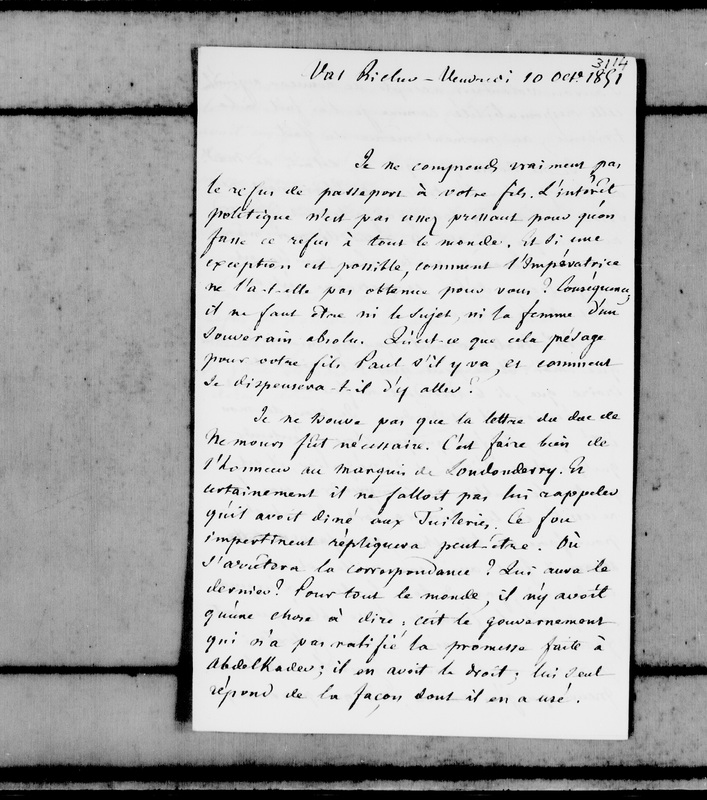 3114
Val Richer - Vendredi 10 Oct. 1851
Je ne comprends vraiment pas
le refus de passeport à votre fils. L'intérêt
politique n'est pas assez pressant pour qu'on
fasse ce refus à tout le monde. Et si une
exception est possible, comment l'Impératrice
ne l'a-t-elle pas obtenue pour vous ? Conséquence,
il ne faut être ni le sujet, ni la femme d'un
souverain absolu. Qu'est-ce que cela présage
pour votre fils Paul s'il y va, et comment
se dispensera-t-il d'y aller ?
Je ne trouve pas que la lettre du duc de
Nemours fût nécessaire. C'est faire bien de
l'honneur au marquis de Londonderry. Et
certainement il ne falloit pas lui rappeler
qu'il avoit diné aux Tuileries. Ce fou
impertinent répliquera peut-être. Où
s'arrêtera la correspondance ? Qui aura le
dernier ? Pour tout le monde, il n'y avoit
qu'une chose à dire ; c'est le gouvernement
qui n'a pas ratifié la promesse faite à
Abdel Kader ; il en avoit le droit ; lui seul
répond de la façon dont il en a usé.